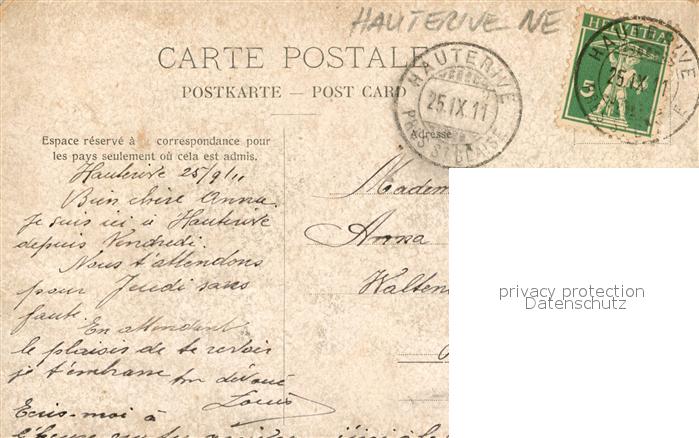 HAUTERIVE NE
CARTE POSTALE
POSTKARTE — POST CARD
HAUTERIVE
25.IX.11
PRÈS ST BLAISE
HELVETIA
5
HAUTERIVE
25.IX.11
Adresse
Espace réservé à la correspondance pour
les pays seulement où cela est admis.
Hauterive 25/9/11
Bien chère Anna.
Je suis ici à Hauterive
depuis Vendredi.
Nous t'attendons
pour Jeudi sans
faute.
En attendant
le plaisir de te revoir
je t'embrasse ton dévoué
Louis
Ecris-moi à
l'heure
Madem
Anna
Walten
privacy protection
Datenschutz